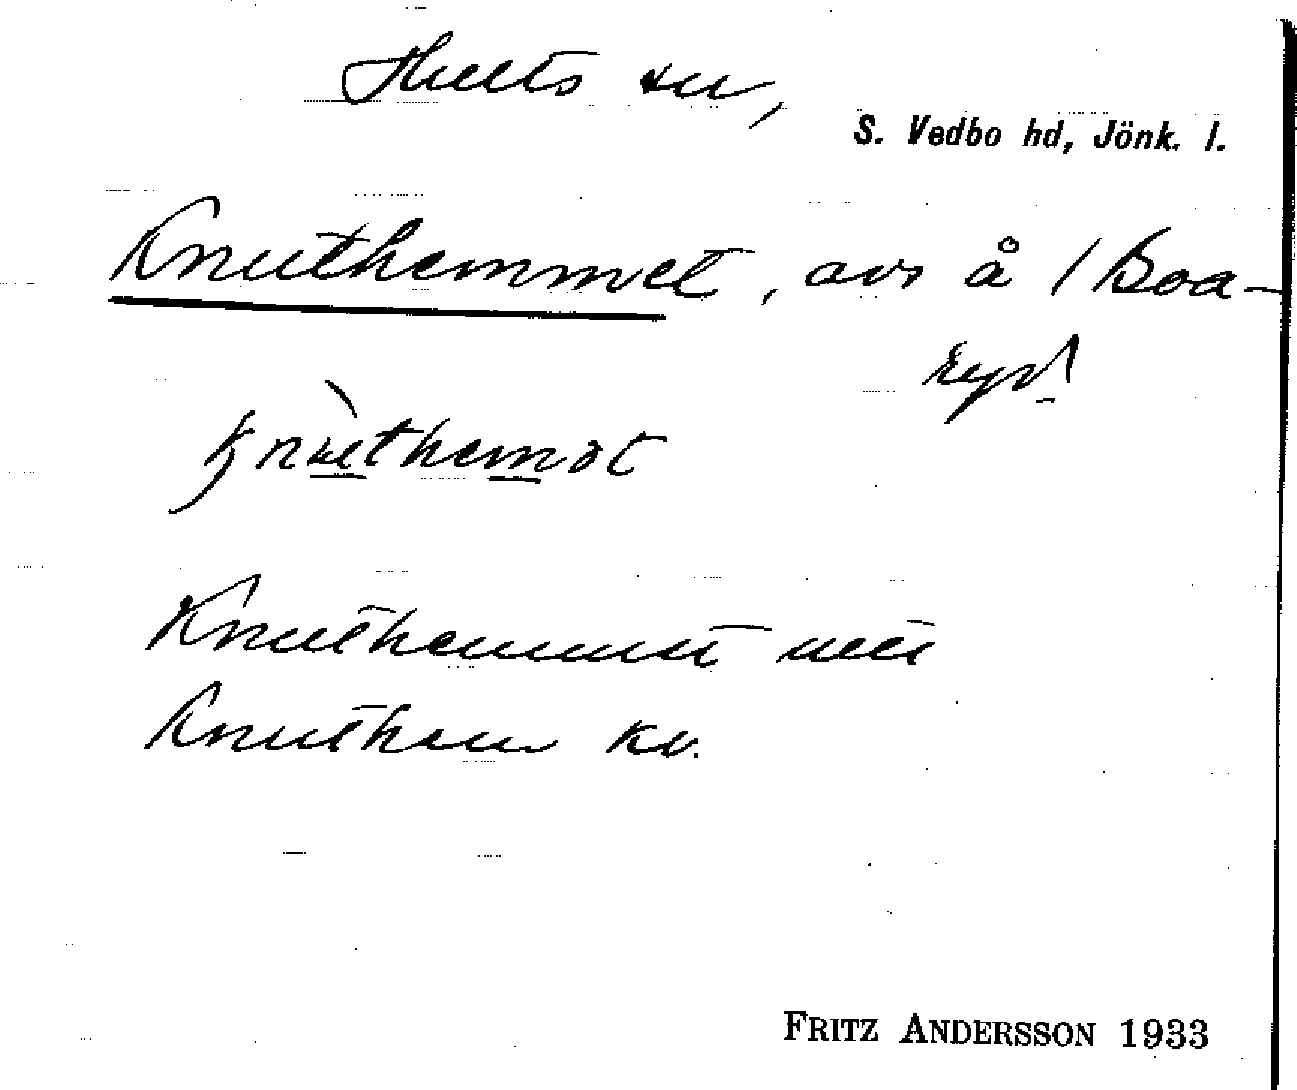 Hults sn,
S. Vedbo hd, Jönk. l.
Knuthemmet, avs å 1 Boa-
ryd
knuthemət
Knuthemmet
Knuthem kv.
FRITZ ANDERSSON 1933